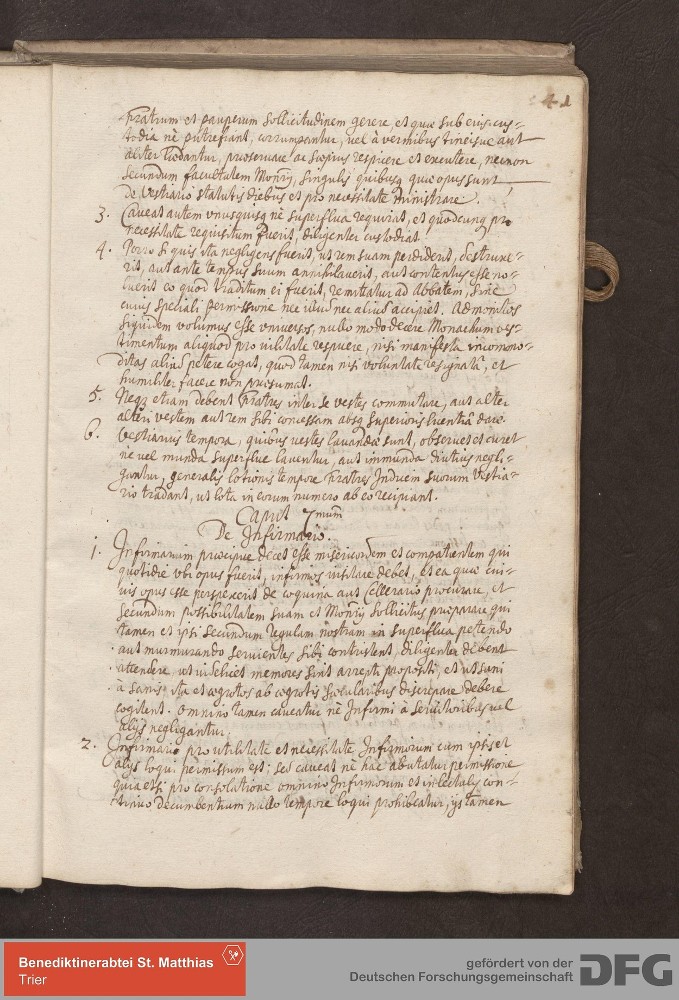 41
fratrum et pauperum sollicitudinem gerere, et quae sub eius cus-
todia nè putrefiant, corrumpantur, vel à vermibus tineisue aut
aliter laedantur, praeseruare ac saepius respicere et excutere, necnon
secundum facultatem Monrij, singulis quibusq quae opus sunt
de Vestiario statutis diebus et pro necessitate ministrare.
3. Caueat autem vnusquisq nè superflua requirat, et quodcunq pro
necessitate requisitum fuerit, diligenter custodiat.
4. Porro si quis ita negligens fuerit, ut rem suam perdiderit, destruxe-
rit, aut ante tempus suum annihilauerit, aut contentus esse no-
luerit eo quod traditum ei fuerit, remittatur ad Abbatem, sine
cuius speciali permissione nec illud nec aliud accipiet. Admonitos
siquidem volumus esse vniuersos, nullo modo decere Monachum ves-
timentum aliquod pro vilitate respuere, nisi manifesta incommo-
ditas aliud petere cogat, quod tamen nisi voluntate resignatâ, et
humiliter facere non praesumat.
5. Neq etiam debent fratres inter se vestes commutare, aut alter
alteri vestem aut rem sibi concessam absq superioris licentiâ dare.
6. Vestiarius tempora, quibus vestes lauandae sunt, obseruet et curet
ne vel munda superflue lauentur, aut immunda diutius negli-
gantur, generalis lotionis tempore fratres Indicem suorum Vestia-
rio tradant, ut lota in eorum numero ab eo recipiant.
Caput 7mum
De Infirmario.
1. Infirmarium praecipue decet esse misericordem et compatientem qui
quotidie vbi opus fuerit, infirmos visitare debet, et ea quae cui-
uis opus esse perspexerit de coquina aut Cellerario procurare, et
secundum possibilitatem suam et Monrij sollicitus praeparare qui
tamen et ipsi secundum regulam nostram in superflua petendo
aut murmurando seruientes sibi contristent, diligenter debent
attendere, ut videlicet memores sint arrepti propositi, et ut sani
à sanis ita et aegrotos ab aegrotis saecularibus discrepare debere
cogitent. Omnino tamen caueatur nè Infirmi à Seruitoribus vel
alijs negligantur.
2. Infirmario pro vtilitate et necessitate Infirmorum cum ipsis et
alijs loqui permissum est; sed caueat nè hac abutatur permissione
quia etsi pro consolatione omnino Infirmorum et in lectulis con-
tinuo decumbentium nullo tempore loqui prohibeatur, ijs tamen
Benediktinerabtei St. Matthias
Trier
gefördert von der
Deutschen Forschungsgemeinschaft
DFG